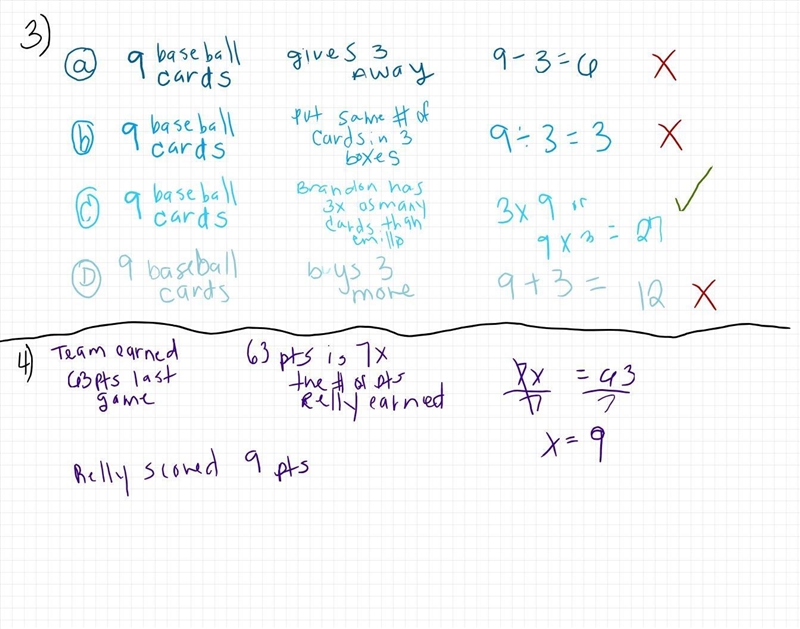 3)
ⓐ 9 baseball cards gives 3 away 9 - 3 = 6 X
ⓑ 9 baseball cards put same # of cards in 3 boxes 9 ÷ 3 = 3 X
ⓒ 9 baseball cards Brandon has 3x as many cards than 3 x 9 or 9 x 3 = 27 ✓
Ⓓ 9 baseball cards buys 3 more 9 + 3 = 12 X
4) Team earned 63 pts last game
63 pts is 7x the # of pts Relly earned
7x = 63
7 7
x = 9
Relly scored 9 pts